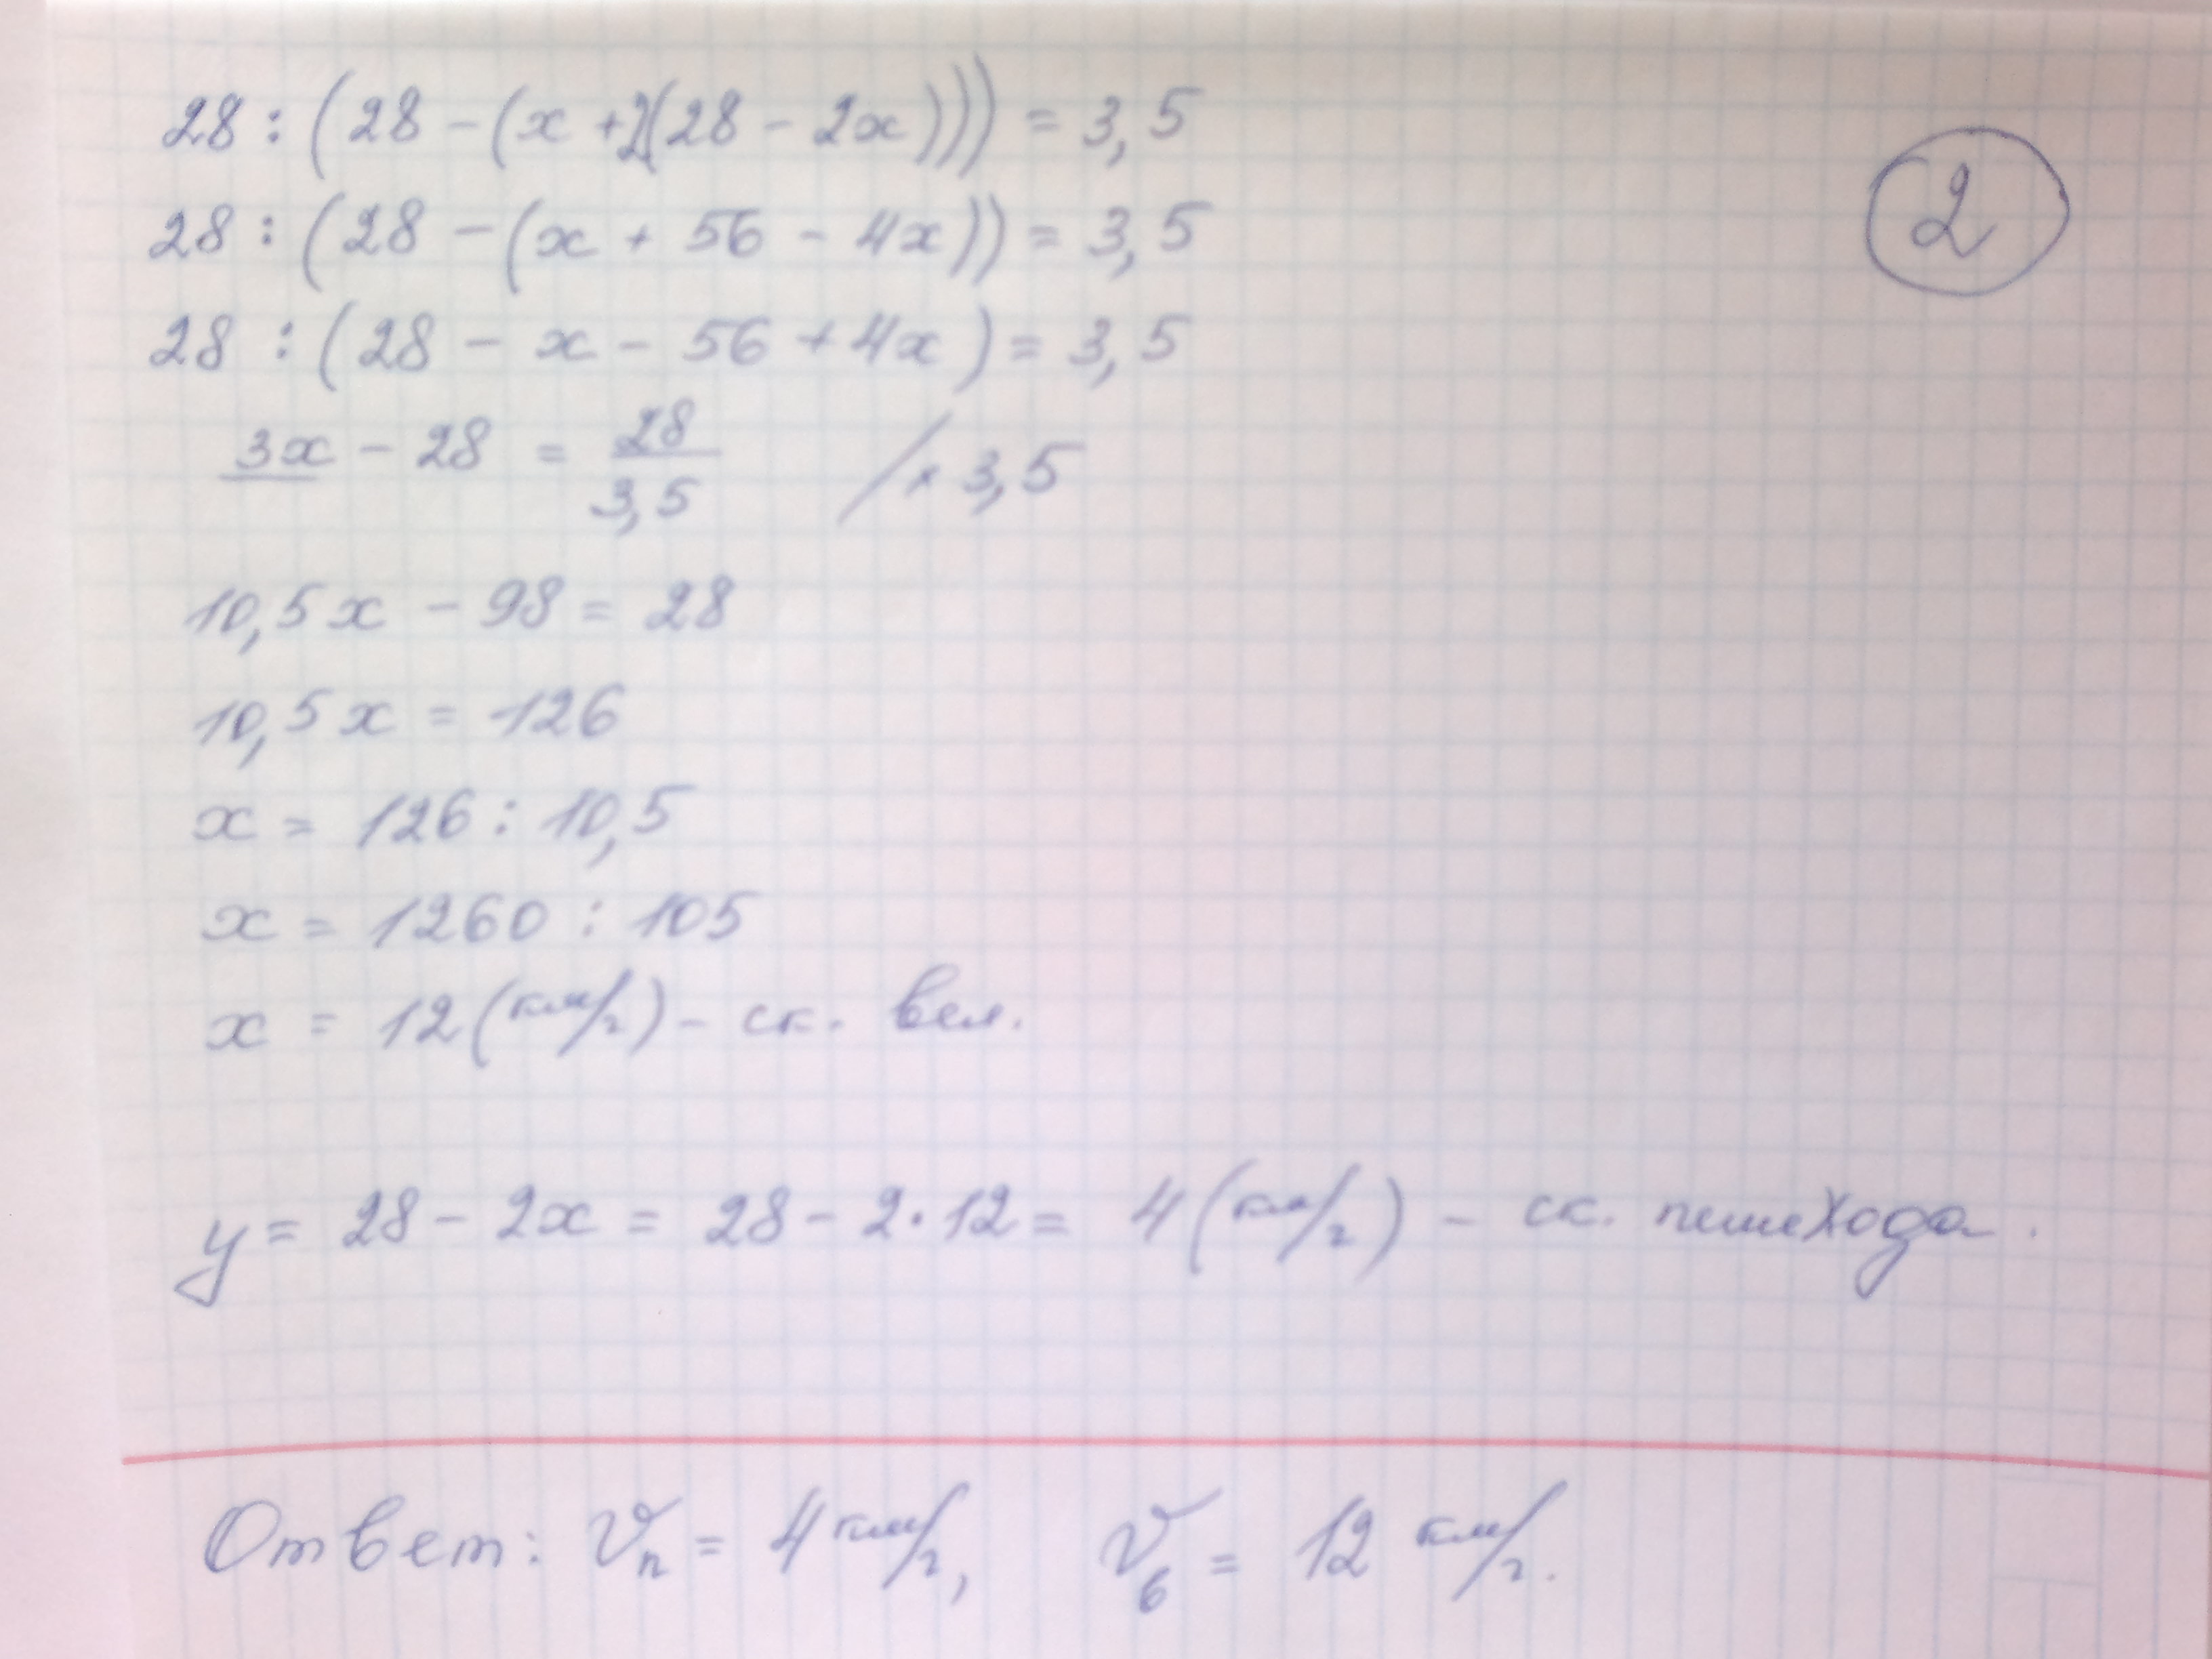 28 : (28 - (x + 2(28 - 2x))) = 3,5
2
28 : (28 - (x + 56 - 4x)) = 3,5
28 : (28 - x - 56 + 4x) = 3,5
3x - 28 = 28/3,5 / × 3,5
10,5x - 98 = 28
10,5x = 126
x = 126 : 10,5
x = 1260 : 105
x = 12 (км/ч) - ск. вел.
y = 28 - 2x = 28 - 2 · 12 = 4 (км/ч) - ск. пешехода.
Ответ: Vп = 4 км/ч, Vв = 12 км/ч.